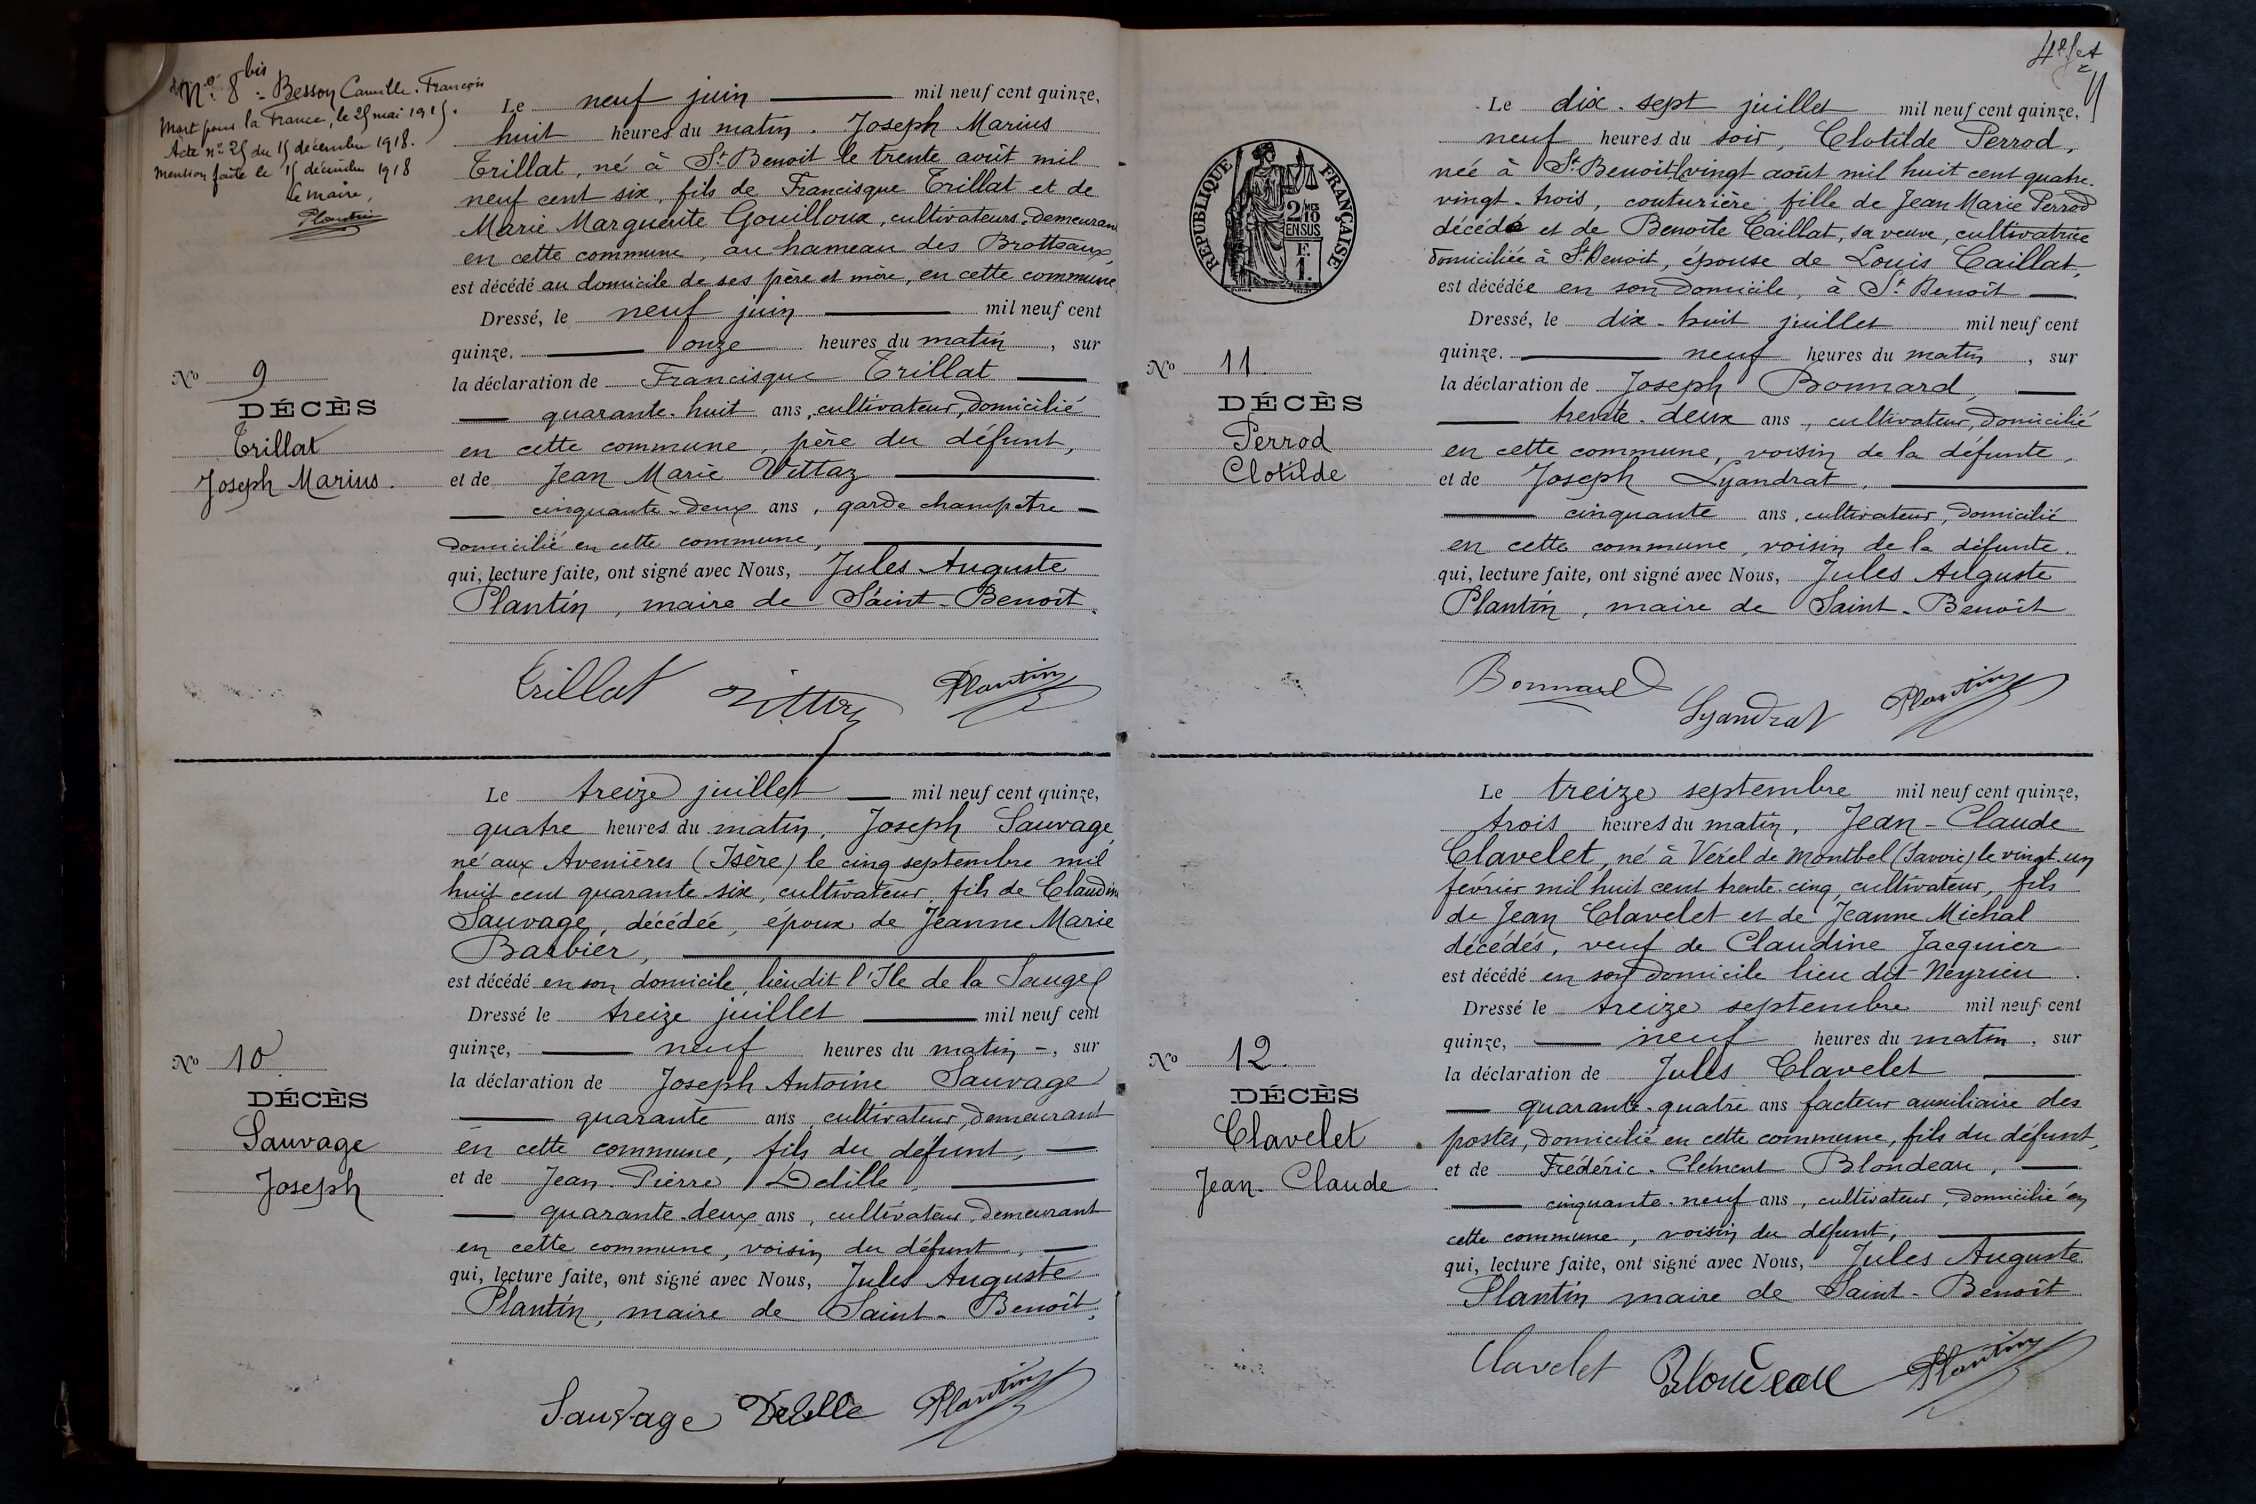 N° 8 bis - Besson Camille François
Mort pour la France, le 25 mai 1915.
Acte n° 25 du 15 décembre 1918.
Mention faite le 15 décembre 1918
Le Maire,
Plantin
Le neuf juin mil neuf cent quinze,
huit heures du matin. Joseph Marius
Trillat, né à St Benoit le trente août mil
neuf cent six, fils de Francisque Trillat et de
Marie Marguerite Gouilloux, cultivateurs, demeurant
en cette commune, au hameau des Brotteaux,
est décédé au domicile de ses père et mère, en cette commune
Dressé, le neuf juin mil neuf cent
quinze. onze heures du matin, sur
la déclaration de Francisque Trillat
quarante-huit ans, cultivateur, domicilié
en cette commune, père du défunt,
et de Jean Marie Vittaz
cinquante-deux ans, garde champêtre
domicilié en cette commune,
qui, lecture faite, ont signé avec Nous, Jules Auguste
Plantin, maire de Saint-Benoit.
N° 9
DÉCÈS
Trillat
Joseph Marius.
Trillat Vittaz Plantin
Le treize juillet mil neuf cent quinze,
quatre heures du matin, Joseph Sauvage
né aux Avenières (Isère) le cinq septembre mil
huit cent quarante six, cultivateur, fils de Claudine
Sauvage, décédée, époux de Jeanne Marie
Barbier,
est décédé en son domicile, lieu dit l'Ile de la Sauge
Dressé le treize juillet mil neuf cent
quinze, neuf heures du matin, sur
la déclaration de Joseph Antoine Sauvage
quarante ans, cultivateur, demeurant
en cette commune, fils du défunt,
et de Jean-Pierre Delille,
quarante-deux ans, cultivateur, demeurant
en cette commune, voisin du défunt,
qui, lecture faite, ont signé avec Nous, Jules Auguste
Plantin, maire de Saint-Benoît.
N° 10
DÉCÈS
Sauvage
Joseph
Sauvage Delille Plantin
RÉPUBLIQUE FRANÇAISE
2/10 MES
EN SUS
F.
1.
Le dix-sept juillet mil neuf cent quinze,
neuf heures du soir, Clotilde Perrod,
née à St Benoit le vingt août mil huit cent quatre-
vingt-trois, couturière fille de Jean Marie Perrod
décédé et de Benoîte Caillat, sa veuve, cultivatrice
domiciliée à St Benoit, épouse de Louis Caillat,
est décédée en son domicile, à St Benoît
Dressé, le dix-huit juillet mil neuf cent
quinze. neuf heures du matin, sur
la déclaration de Joseph Bonnard,
trente-deux ans, cultivateur, domicilié
en cette commune, voisin de la défunte,
et de Joseph Lyandrat,
cinquante ans, cultivateur, domicilié
en cette commune, voisin de la défunte.
qui, lecture faite, ont signé avec Nous, Jules Auguste
Plantin, maire de Saint-Benoît
N° 11.
DÉCÈS
Perrod
Clotilde
Bonnard Lyandrat Plantin
Le treize septembre mil neuf cent quinze,
trois heures du matin, Jean-Claude
Clavelet, né à Vérel de Montbel (Savoie) le vingt-un
février mil huit cent trente-cinq, cultivateur, fils
de Jean Clavelet et de Jeanne Michal
décédés, veuf de Claudine Jacquier
est décédé en son domicile lieu dit Neyrieu.
Dressé le treize septembre mil neuf cent
quinze, neuf heures du matin, sur
la déclaration de Jules Clavelet
quarante-quatre ans facteur auxiliaire des
postes, domicilié en cette commune, fils du défunt,
et de Frédéric-Clément Blondeau,
cinquante-neuf ans, cultivateur, domicilié en
cette commune, voisin du défunt,
qui, lecture faite, ont signé avec Nous, Jules Auguste
Plantin maire de Saint-Benoît
N° 12.
DÉCÈS
Clavelet
Jean-Claude
Clavelet Blondeau Plantin